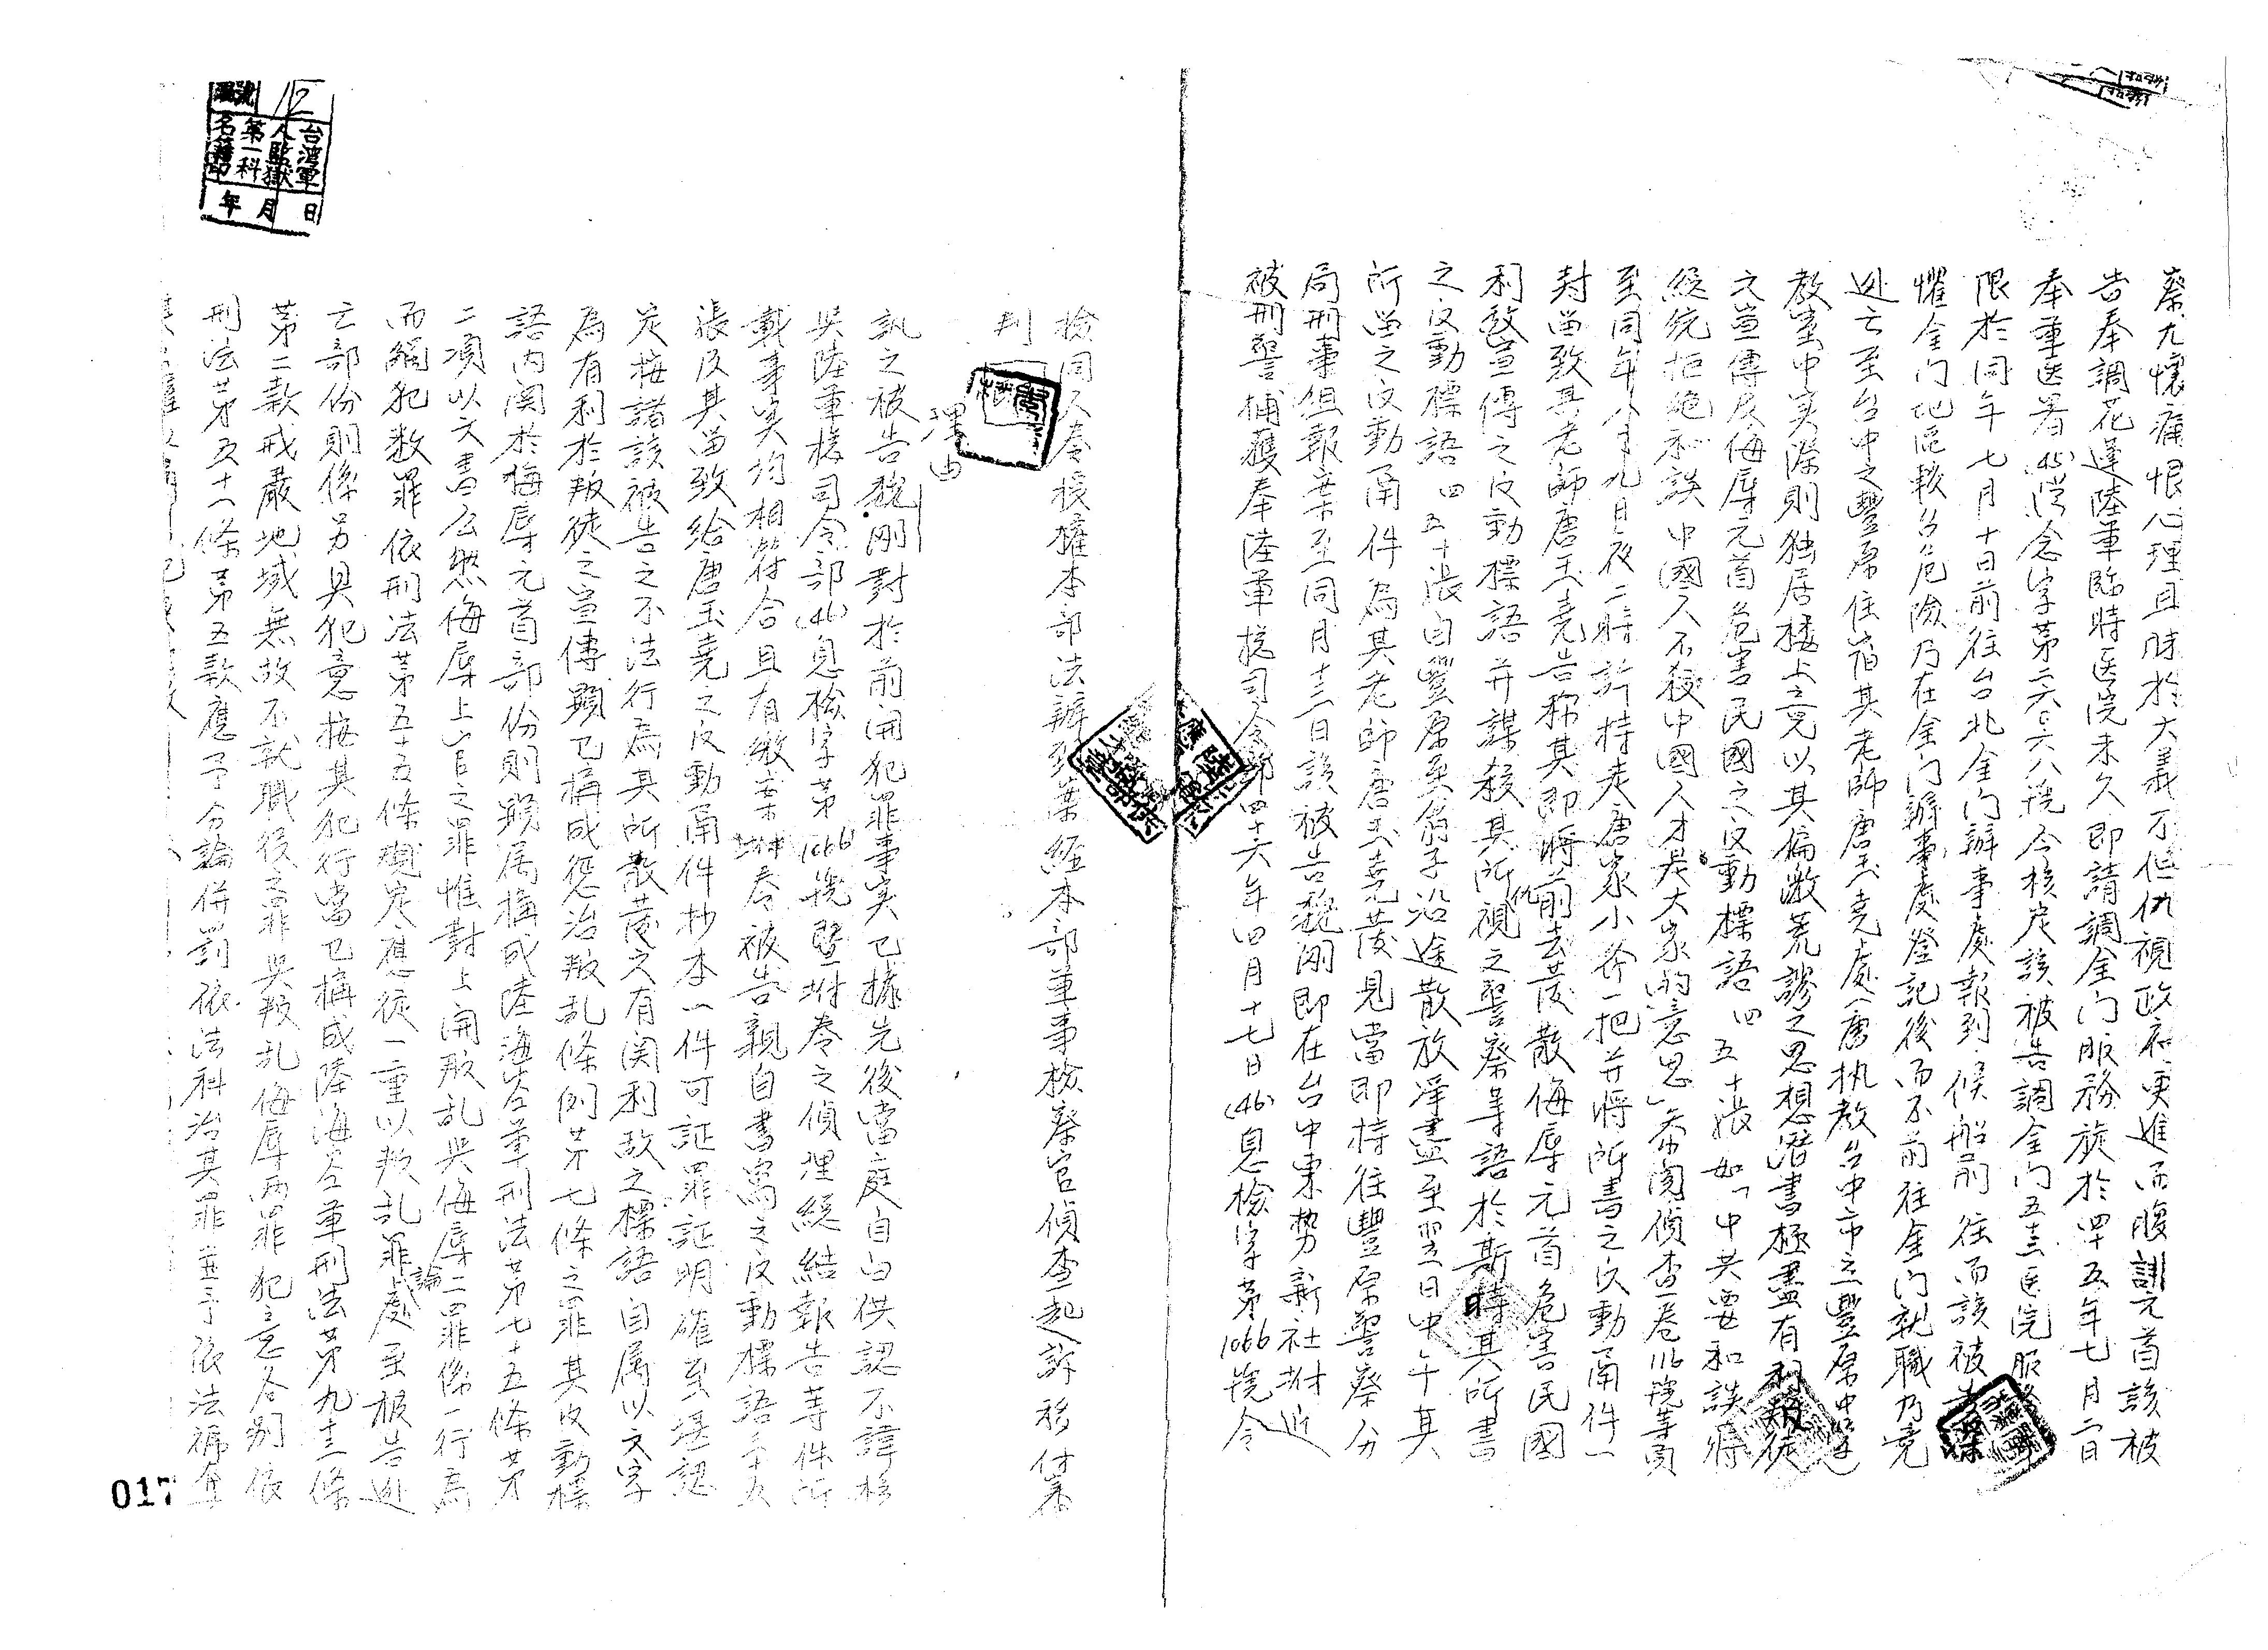 察尤懷痛恨心理且昧於大義不但仇視政府更進而腹誹元首該被
告奉調花蓮陸軍臨時医院未久即請調金门服務旋於四十五年七月二日
奉軍医署(45)澄念字第二六六八號令核定該被告調金门五三医院服務
限於同年七月十日前往台北金门辦事處報到候船前往而該被告深
懼金门地區較台危險乃在金门辦事處登記後而不前往金门就職乃竟
逃亡至台中之豐原住宿其老師唐玉堯處(唐执教台中市立豐原中學)
教室中实際則独居楼上竟以其偏激荒謬之思想潛書極盡有利叛徒
之宣傳及侮辱元首危害民國之反動標語四五十張如「中共要和談蔣
總統拒絕和談中國人不殺中國人才是大家的意思」希閱偵查卷116號等頁
至同年八月九日夜二時許持走唐家小斧一把并將所書之反動函件一
封留致其老師唐玉堯告稱其即將前去發散侮辱元首危害民國
利敵宣傳之反動標語并謀殺其所仇視之警察等語於斯時其所書
之反動標語四五十張由豐原至翁子沿途散放淨盡至翌日中午其
所留之反動函件為其老師唐玉堯發見當即持往豐原警察分
局刑事组報案至同月十三日該被告魏剛即在台中東势新社附近
被刑警捕獲奉陸軍總司令部四十六年四月十七日(46)息檢字第1066號令
檢同人卷授權本部法辦到案經本部軍事檢察官偵查起訴移付審
判
理由
訊之被告魏剛對於前開犯罪事实已據先後當庭自白供認不諱核
與陸軍總司令部(46)息檢字第1066號暨附卷之偵理總結報告等件所
載事实均相符合且有繳案附卷被告親自書寫之反動標語
張及其留致給唐玉堯之反動函件抄本一件可証罪証明確至堪認
定按諸該被告之不法行為其所散發之有関利敌之標語自属以文字
為有利於叛徒之宣傳顯已構成懲治叛乱條例第七條之罪其反動標
語内関於侮辱元首部份則顯属構成陸海空軍刑法第七十五條第
二項以文書公然侮辱上官之罪惟對上開叛乱與侮辱二罪係一行為
而觸犯数罪依刑法第五十五條規定應從一重以叛乱罪論處至被告逃
亡部份則係另具犯意按其犯行當已構成陸海空軍刑法第九十三條
第二款戒嚴地域無故不就職役之罪與叛乱侮辱两罪犯意各别依
刑法第五十一條第五款應予分論併罰依法科治其罪並予依法褫奪
台湾軍
人監獄
第一科
名籍
號 12
年月日
017